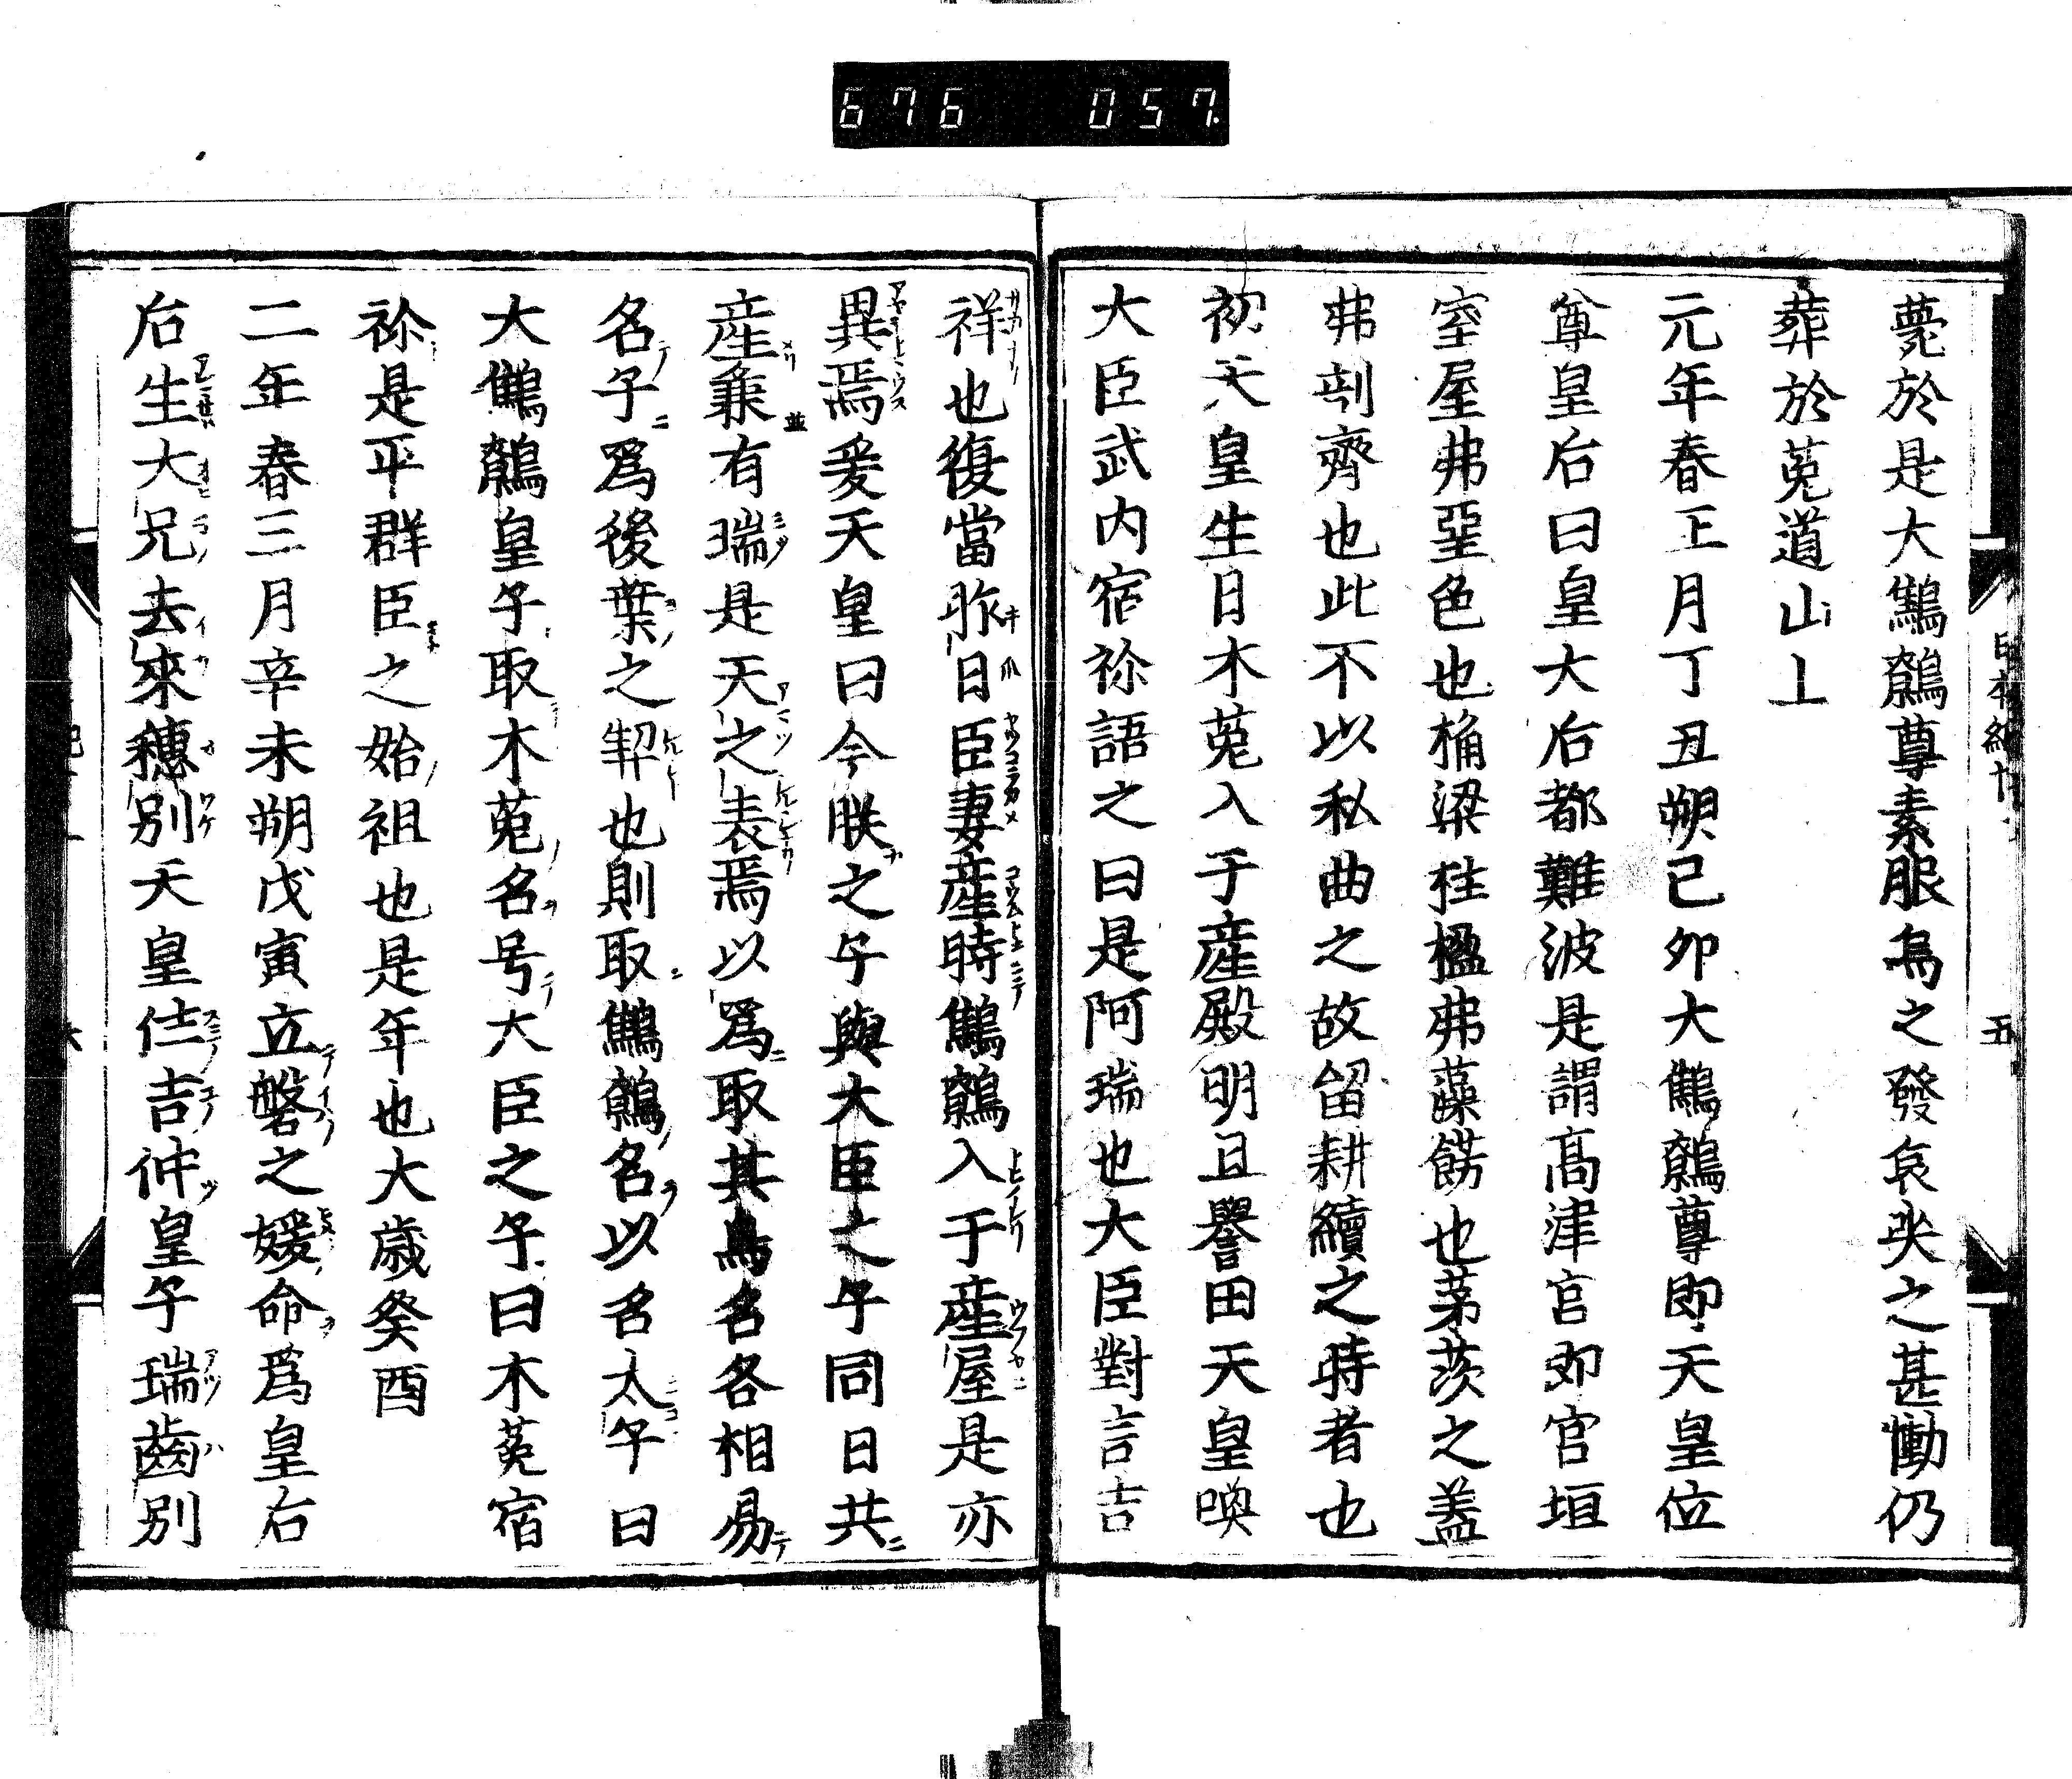 676 057
日本紀十
五
薨於是大鷦鷯尊素服為之發哀哭之甚慟仍
葬於菟道山上
元年春正月丁丑朔己卯大鷦鷯尊即天皇位
尊皇后曰皇大后都難波是謂髙津宮即宮垣
室屋弗堊色也桷梁柱楹弗藻餝也茅茨之盖
弗剖齊也此不以私曲之故留耕績之時者也
初天皇生日木菟入于産殿明旦譽田天皇喚
大臣武内宿祢語之曰是何瑞也大臣對言吉
祥也復當昨日臣妻産時鷦鷯入于産屋是亦
異焉爰天皇曰今朕之子與大臣之子同日共
産兼有瑞是天之表焉以爲取其鳥名各相易
名子爲後葉之契也則取鷦鷯名以名太子曰
大鷦鷯皇子取木菟名号大臣之子曰木菟宿
祢是平群臣之始祖也是年也大歳癸酉
二年春三月辛未朔戊寅立磐之媛命爲皇右
后生大兄去來穗別天皇住吉仲皇子瑞齒別